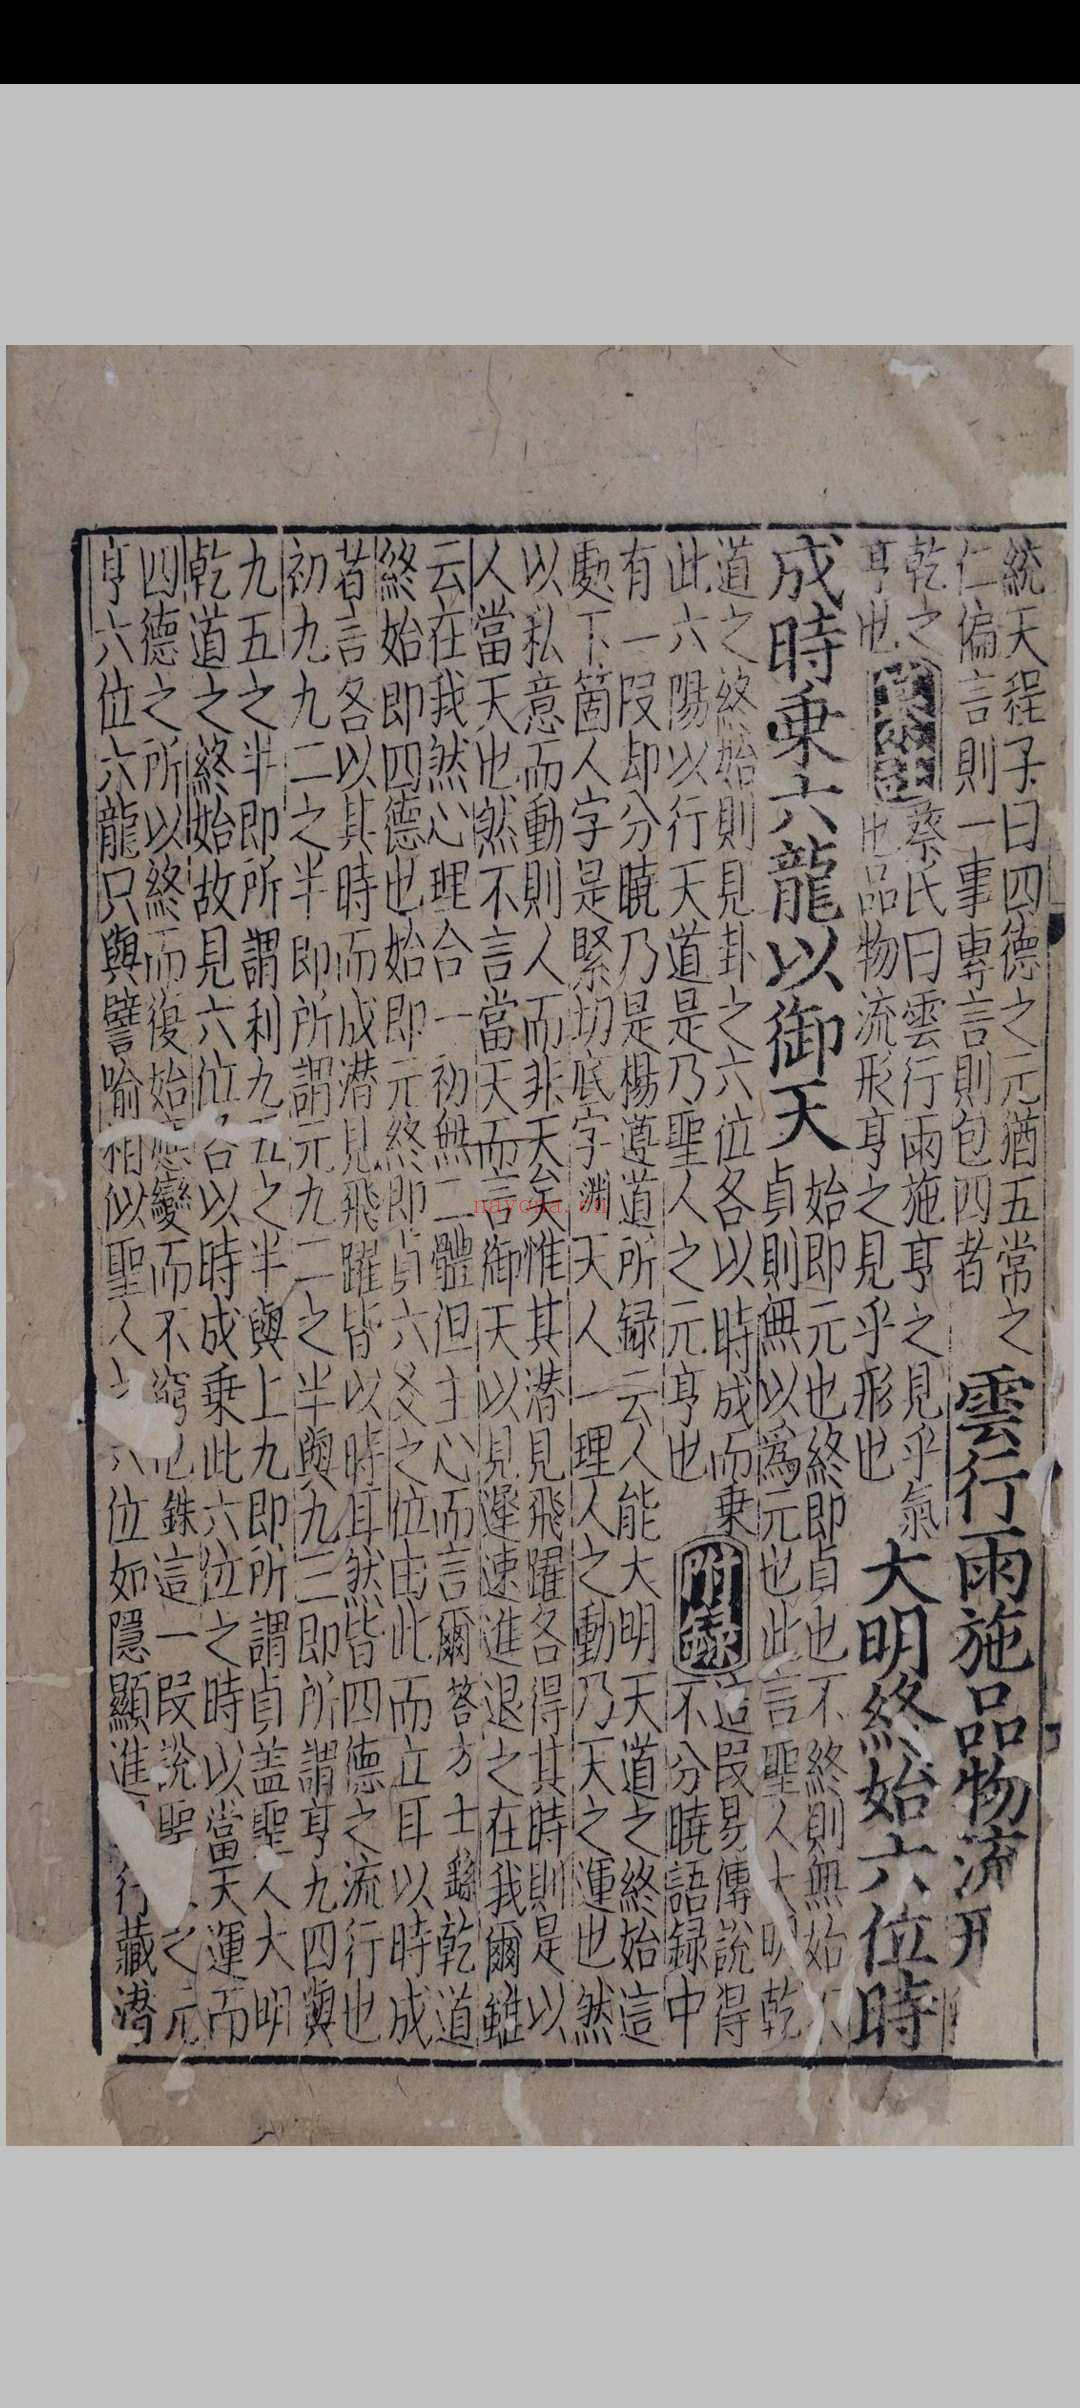 統天程子曰四德之元猶五常之
仁偏言則一事專言則包四者
雲行雨施品物流形
乾之
亨也
蔡氏曰雲行雨施亨之見乎氣
也品物流形亨之見乎形也
大明終始六位時
成時乗六龍以御天
始即元也終即貞也不終則無始不
貞則無以爲元也此言聖人大明乾
道之終始則見卦之六位各以時成而乗
此六陽以行天道是乃聖人之元亨也
附録
這叚易傳說得
不分曉語録中
有一叚却分曉乃是楊遵道所録云人能大明天道之終始這
處下箇人字是緊切底字淵天人一理人之動乃天之運也然
以私意而動則人而非天矣惟其潜見飛躍各得其時則是以
人當天也然不言當天而言御天以見遲速進退之在我爾雖
云在我然心理合一初無二體但主心而言爾答方士繇乾道
終始即四德也始即元終即貞六爻之位由此而立耳以時成
者言各以其時而成潜見飛躍皆以時耳然皆四德之流行也
初九九二之半即所謂元九二之半與九三即所謂亨九四與
九五之半即所謂利九五之半與上九即所謂貞盖聖人大明
乾道之終始故見六位各以時成乗此六位之時以當天運而
四德之所以終而復始應變而不窮也銖這一叚說聖之元
亨六位六龍只與譬喻相似聖人六位如隱顯進行藏潜
nayona.cn